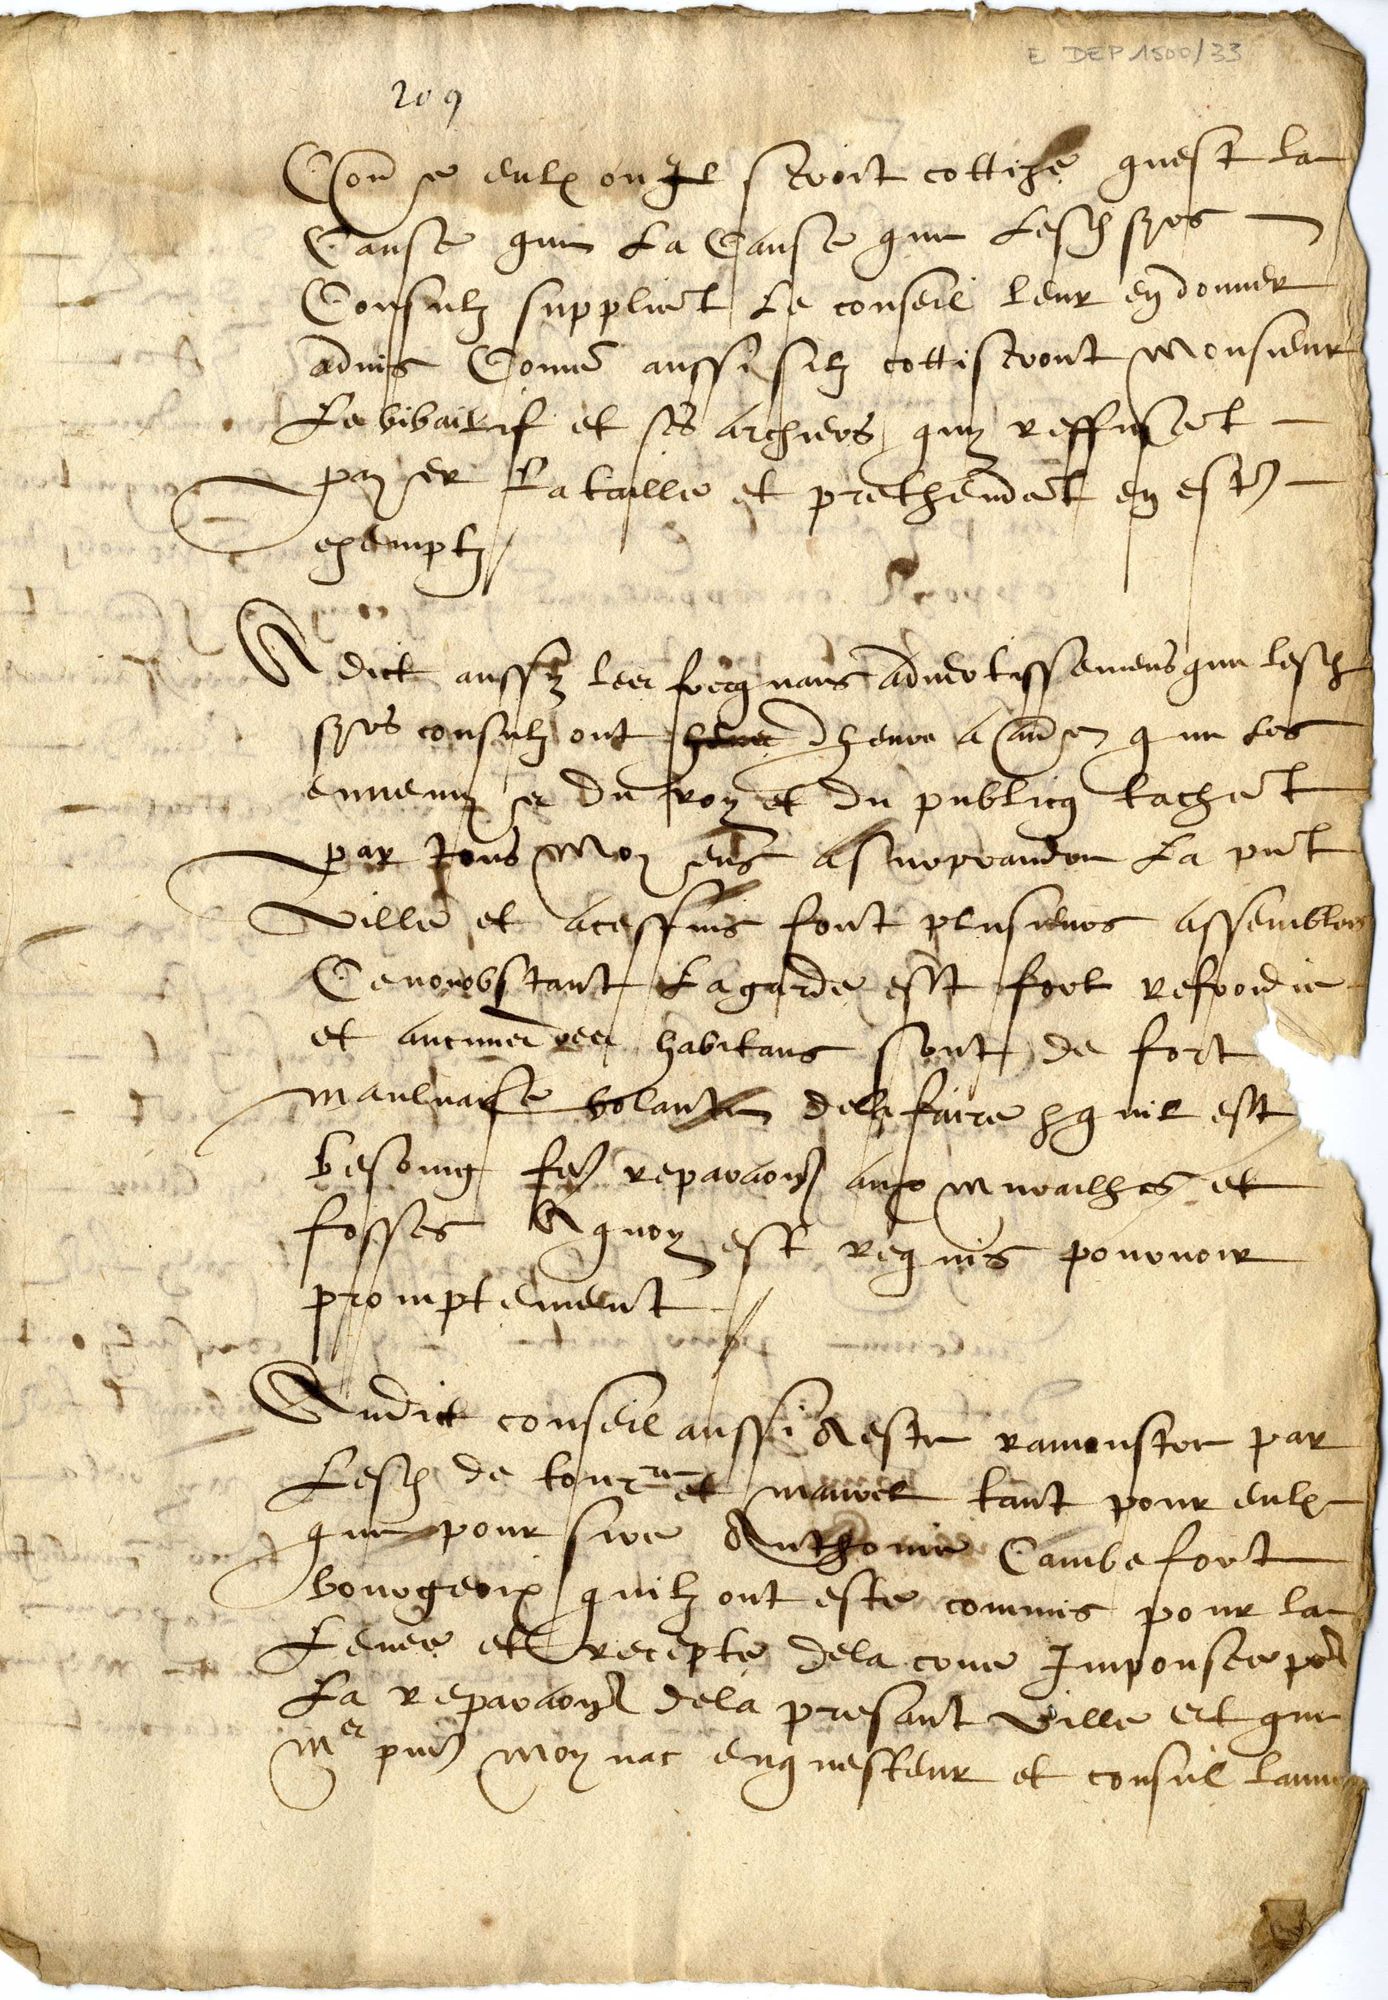 E DEP 1500/33
209
eulx ou Il seroit cottize quest la
Cause que La Cause que Lesdz srs
Consulz supplient Le conseil leur en donner
advis Comme aussi silz cottiseront monsieur
Le vibailif et ses archiers quy reffusent
payer La taille et prethendent en estre
exemptz
A dict aussy les advertissemens que lesdz
srs consulz ont dheure a que Les
ennemys du roy et du publicq tachent
par tous moyens a surprandre La pnt
Ville et a ces fins font plusieurs assemblees
Ce nonobstant La garde est fort refroidie
et aucunes des habitans sont de fort
maulvaise volante de la faire quil est
besoing fere reparaons aux murailhes et
fosses A quoy est requis pourvoir
promptement
Audict conseil aussi A este ramonstre par
Lesdz de tour et tant pour eulx
que pour sire Anthoine Cambefort
bourgeoix quilz ont este commis pour la
Levee et recepte de la Imposee pour
La reparaon de la presant Ville et que
Mer moynac enquesteur et consul